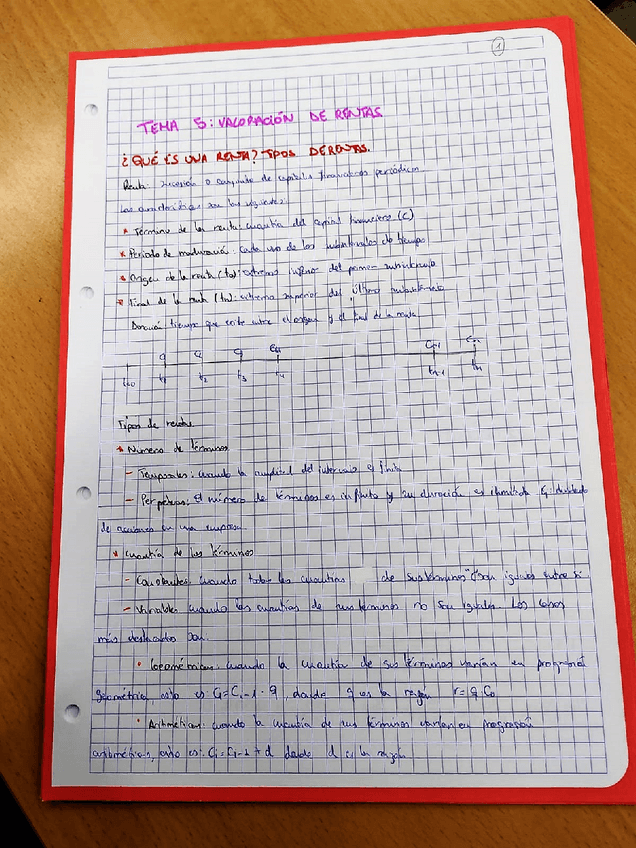 1
TEMA 5: VALORACIÓN DE RENTAS
¿QUÉ ES UNA RENTA? TIPOS DE RENTAS.
Renta: sucesión o conjunto de capitales financieros periódicos
Las características son las siguientes:
* Término de la renta: cuantía del capital financiero (C)
* Periodo de maduración: cada uno de los subintervalos de tiempo
* Origen de la renta (to): extremo inferior del primer subintervalo
* Final de la renta (tn): extremo superior del último subintervalo
Duración tiempo que existe entre el origen y el final de la renta
Cn-1 Cn
to t1 t2 t3 t4 tn-1 tn
Tipos de rentas
* Número de términos
- Temporales: cuando la amplitud del intervalo es finita
- Perpetuas: El número de términos es infinito y su duración es ilimitada
de acciones en una empresa.
* Cuantía de los términos
- Constantes: cuando todas las cuantías de sus términos son iguales entre sí
- Variables cuando las cuantías de sus términos no son iguales. Los casos
más destacados son:
• Geométricas: cuando la cuantía de sus términos varían en progresión
geométrica, esto es: Ci=Ci-1·q donde q es la razón
• Aritméticas: cuando la cuantía de sus términos varían en progresión
aritmética, esto es: Ci=Ci-1+d donde d es la razón